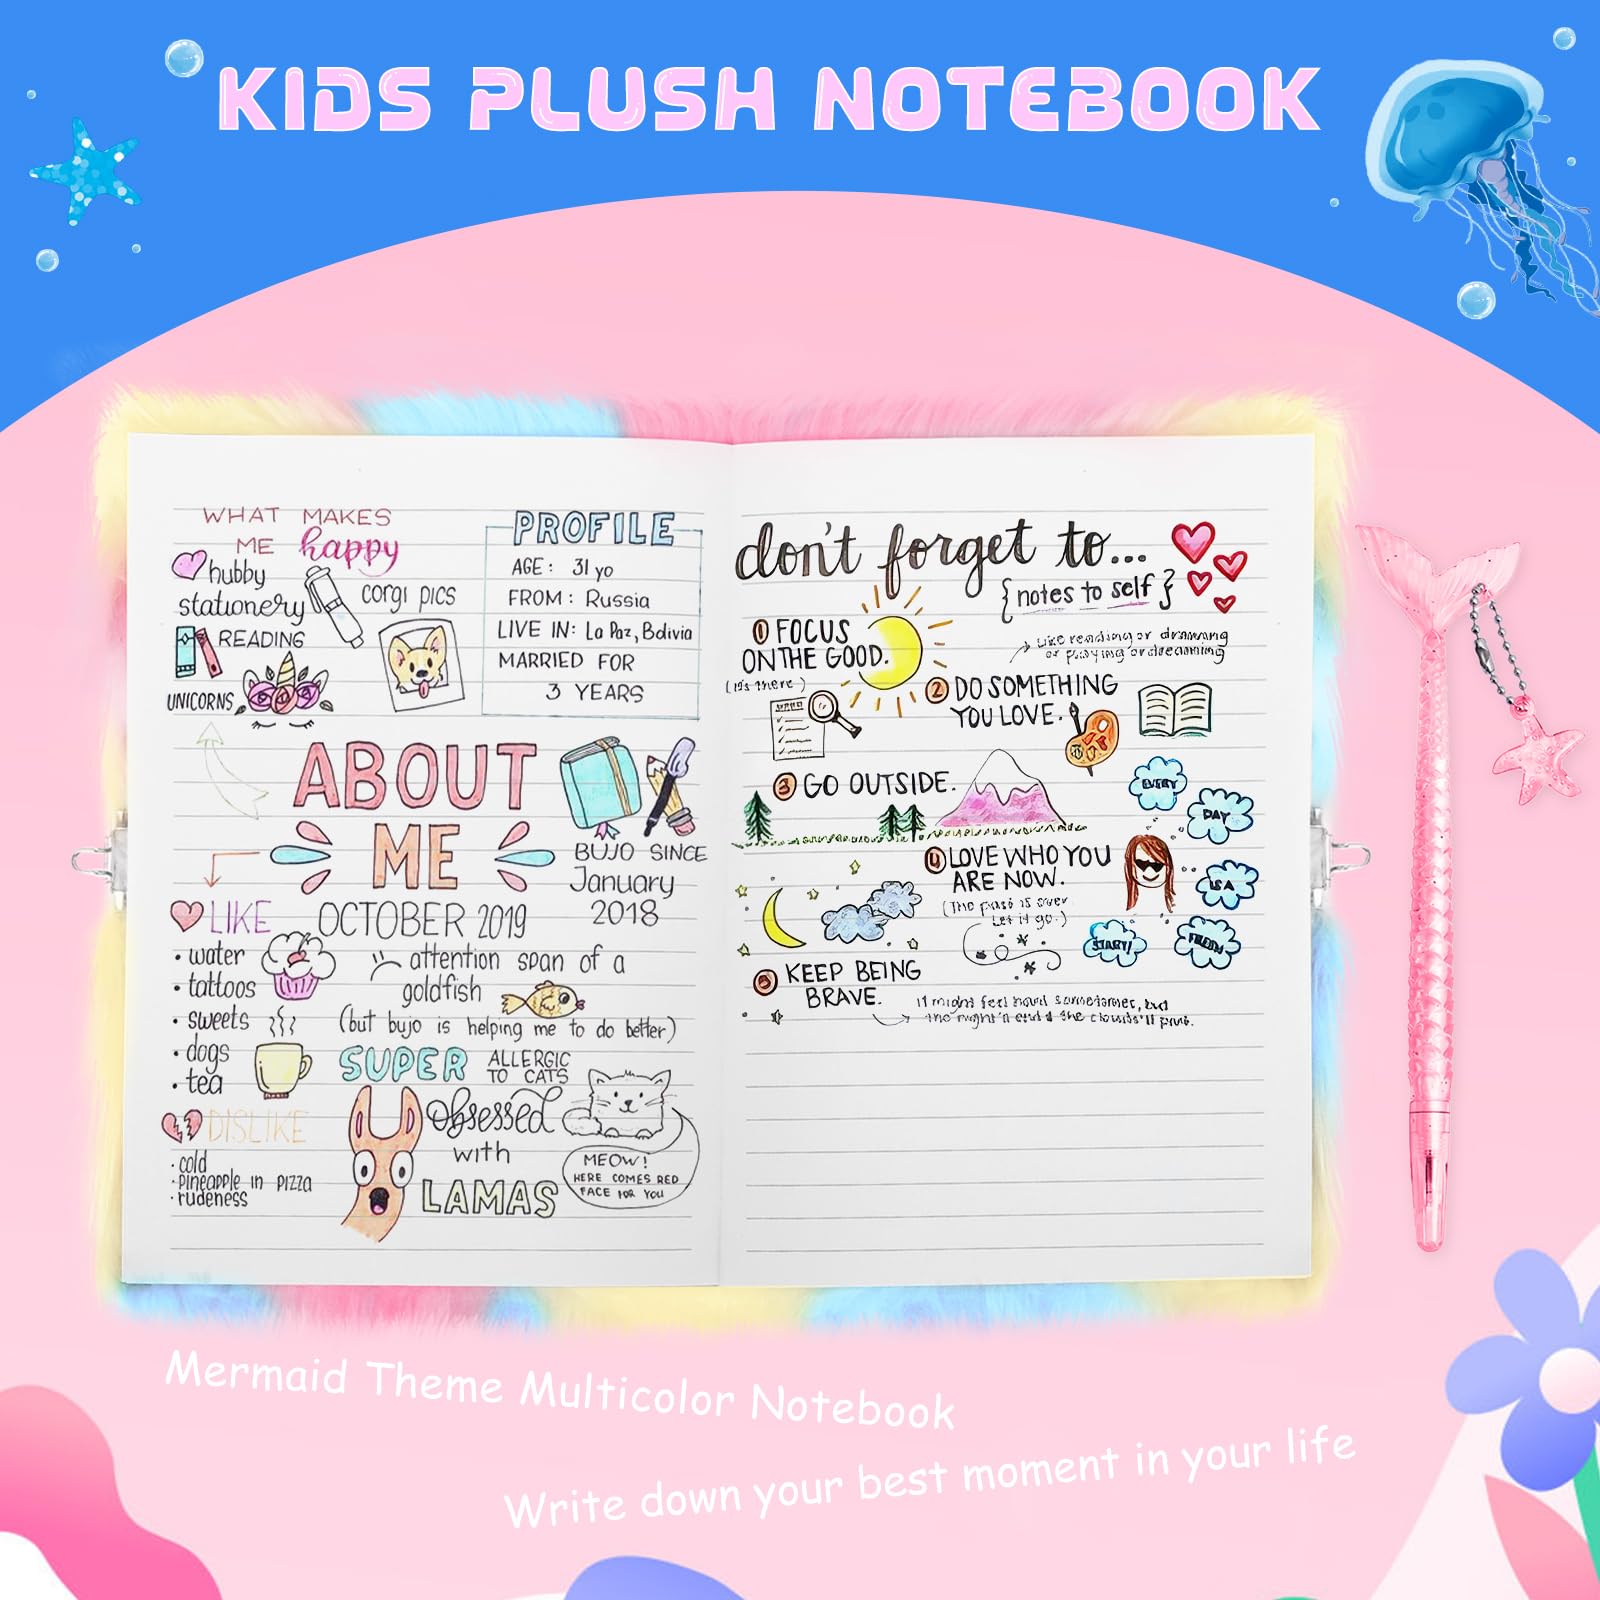 KIDS PLUSH NOTEBOOK
WHAT MAKES
ME happy
hubby
stationery
corgi pics
READING
UNICORNS
PROFILE
AGE: 31 yo
FROM: Russia
LIVE IN: La Paz, Bolivia
MARRIED FOR
3 YEARS
ABOUT
ME
BUJO SINCE
January
2018
LIKE
OCTOBER 2019
• water
• tattoos
• sweets
• dogs
• tea
attention span of a
goldfish
(but bujo is helping me to do better)
SUPER
ALLERGIC
TO CATS
DISLIKE
· cold
· pineapple in pizza
· rudeness
Obsessed
with
LAMAS
MEOW!
HERE COMES RED
FACE FOR YOU
don't forget to...
{notes to self}
1 FOCUS
ON THE GOOD.
(it's there)
Like reading or drawing
or playing or dreaming
2 DO SOMETHING
YOU LOVE.
3 GO OUTSIDE.
EVERY
DAY
IS A
FRESH
START!
4 LOVE WHO YOU
ARE NOW.
(The past is over
Let it go.)
5 KEEP BEING
BRAVE.
it might feel hard sometimes, but
the night'll end & the clouds'll part.
Mermaid Theme Multicolor Notebook
Write down your best moment in your life